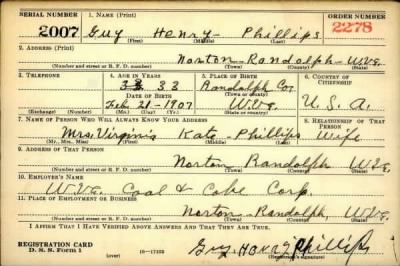 SERIAL NUMBER 1. NAME (Print) ORDER NUMBER
2007 Guy Henry Phillips 2278
(First) (Middle) (Last)
2. ADDRESS (Print)
Norton-Randolph-W.Va.
(Number and street or R. F. D. number) (Town) (County) (State)
3. TELEPHONE 4. AGE IN YEARS 5. PLACE OF BIRTH 6. COUNTRY OF CITIZENSHIP
33 Randolph Co.
DATE OF BIRTH (Town or county)
Feb 21-1907 W.Va. U.S.A.
(Exchange) (Number) (Mo.) (Day) (Yr.) (State or country)
7. NAME OF PERSON WHO WILL ALWAYS KNOW YOUR ADDRESS 8. RELATIONSHIP OF THAT PERSON
Mrs. Virginia Kate Phillips Wife
(Mr., Mrs., Miss) (First) (Middle) (Last)
9. ADDRESS OF THAT PERSON
Norton Randolph W.Va.
(Number and street or R. F. D. number) (Town) (County) (State)
10. EMPLOYER'S NAME
W.Va. Coal & Coke Corp.
11. PLACE OF EMPLOYMENT OR BUSINESS
Norton-Randolph, W.Va.
(Number and street or R. F. D. number) (Town) (County) (State)
I AFFIRM THAT I HAVE VERIFIED ABOVE ANSWERS AND THAT THEY ARE TRUE.
REGISTRATION CARD
D. S. S. Form 1 (over) 16-17105 Guy Henry Phillips
(Registrant's signature)